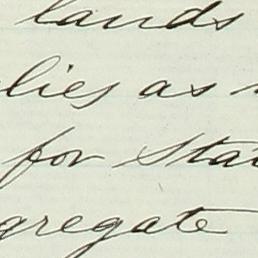 lands
lies as
for Sta
gregate